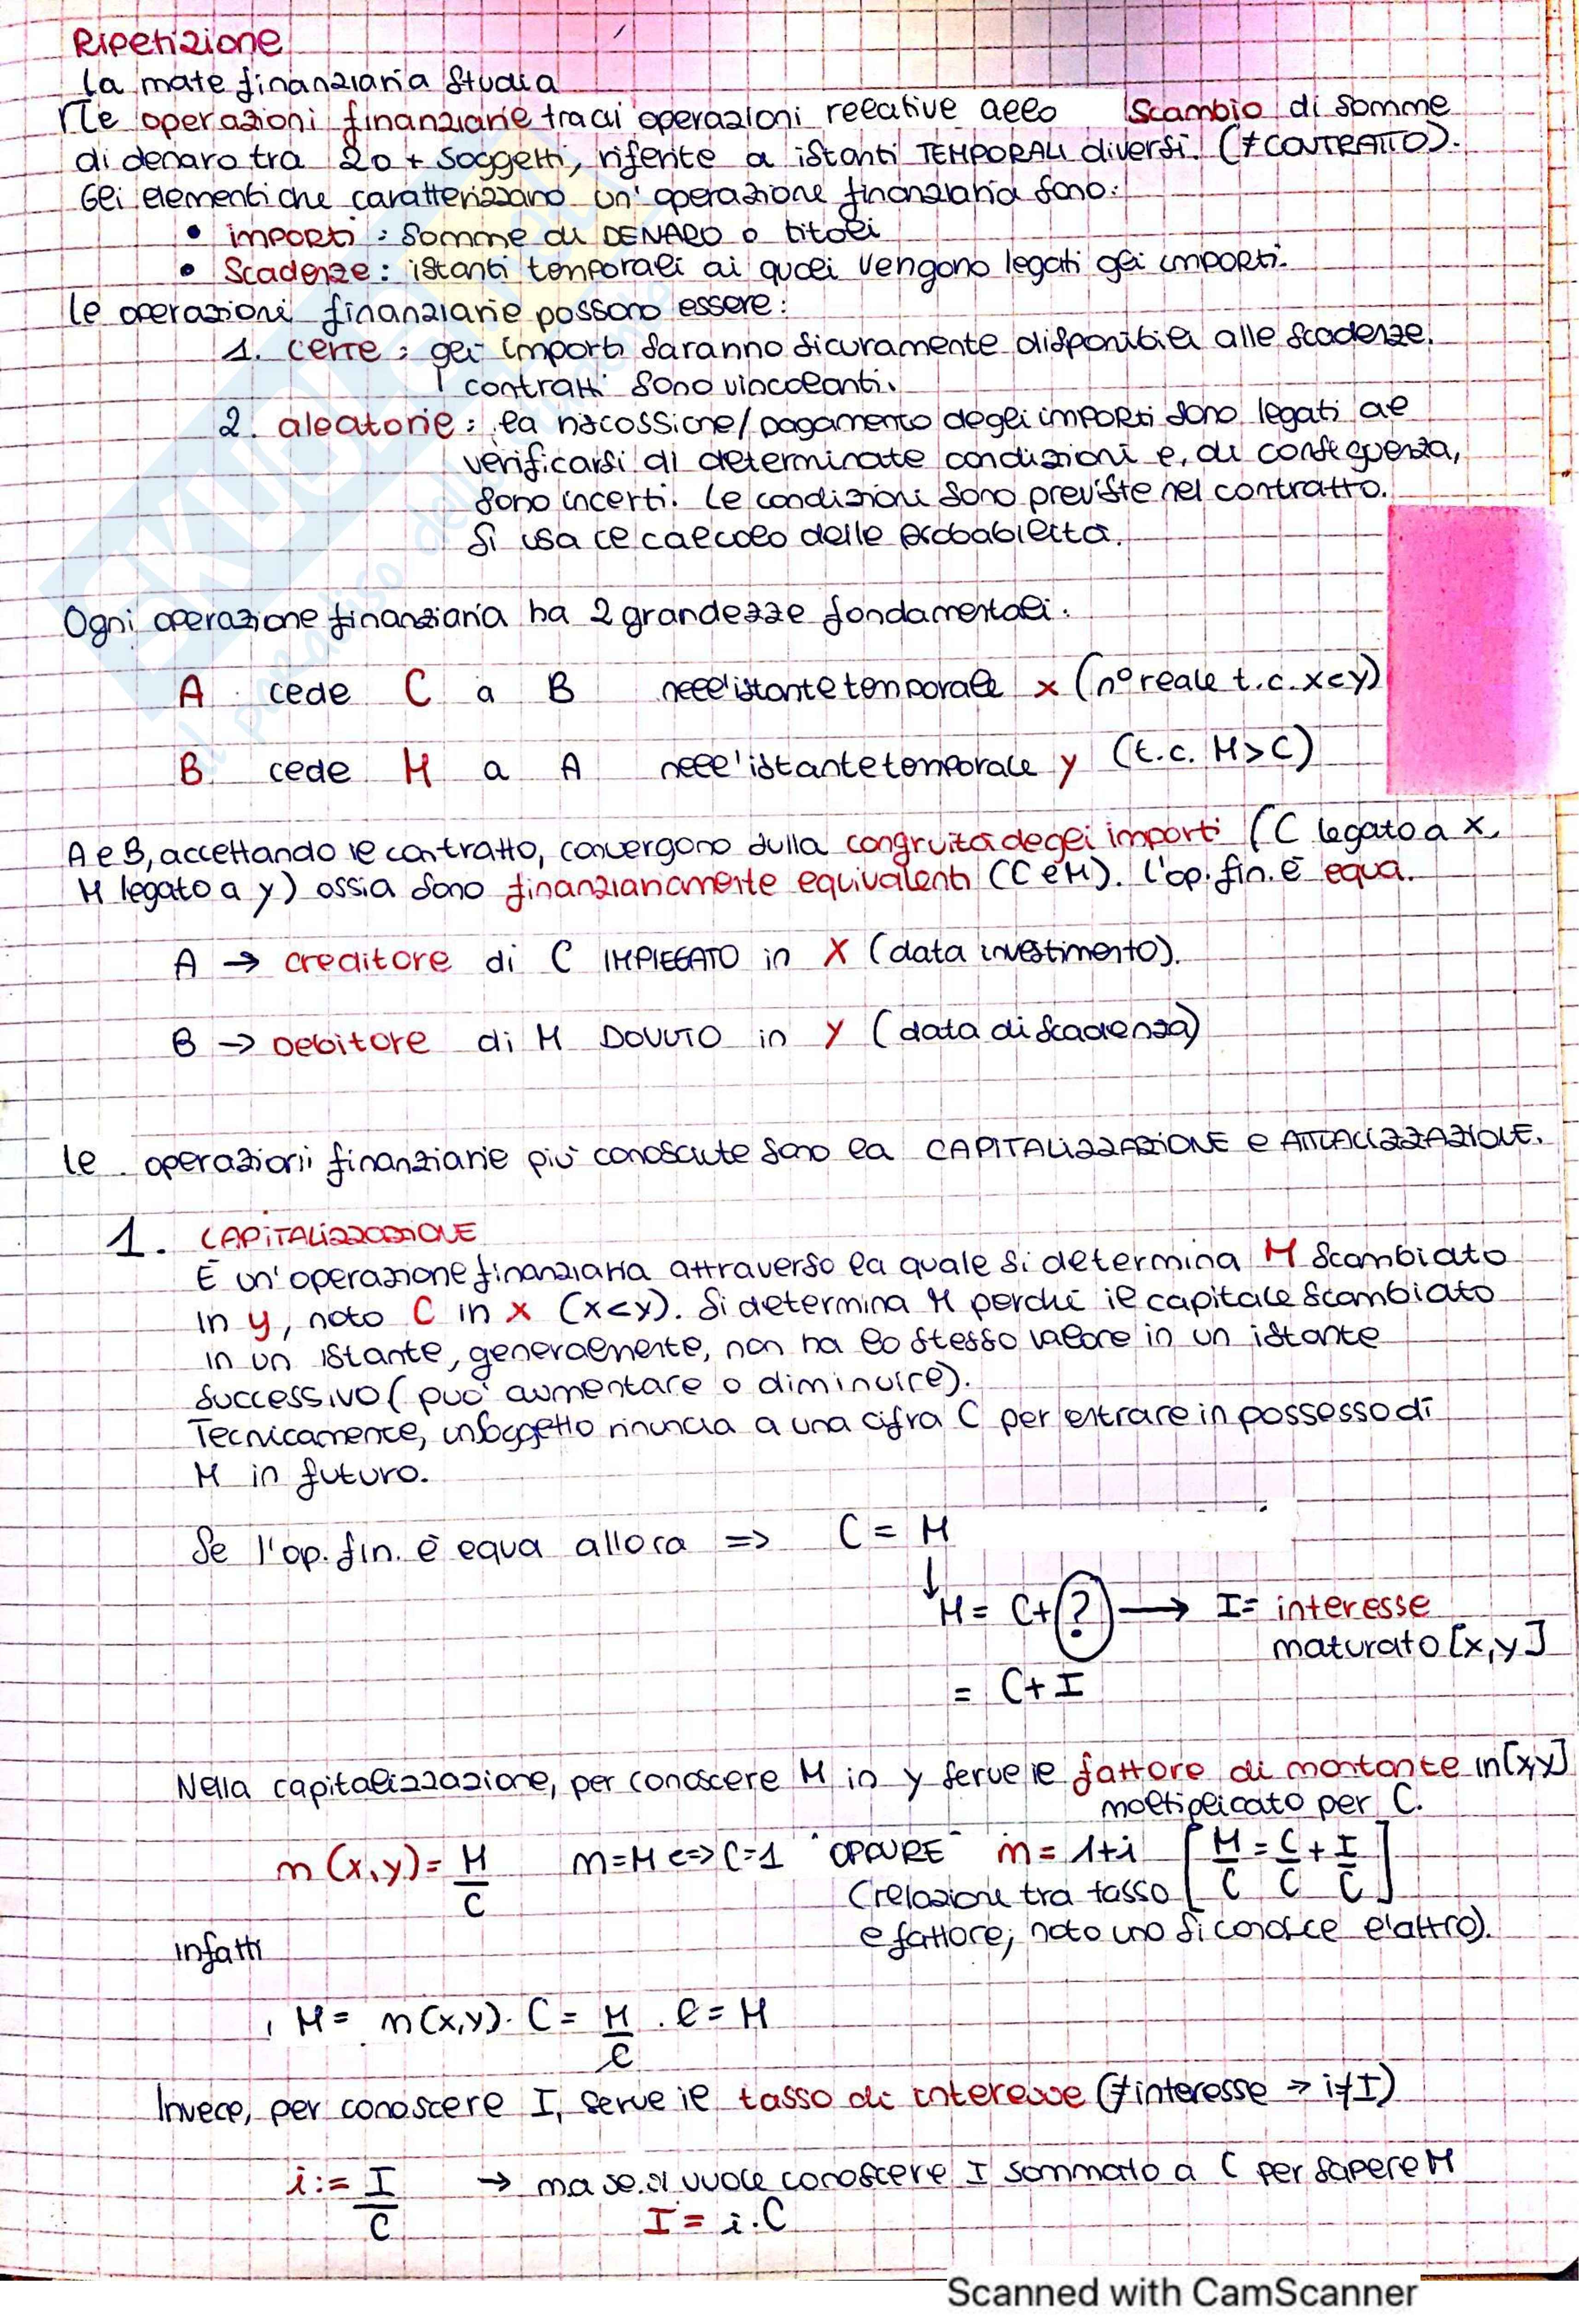 Ripetizione
la mate finanziaria studia
le operazioni finanziarie tra cui operazioni relative allo scambio di somme
di denaro tra 2 o + soggetti, riferite a istanti TEMPORALI diversi. (≠ CONTRATTO).
Gli elementi che caratterizzano un'operazione finanziaria sono:
• importi : somme di DENARO o titoli
• Scadenze : istanti temporali ai quali vengono legati gli importi.
le operazioni finanziarie possono essere:
1. certe : gli importi saranno sicuramente disponibili alle scadenze.
I contratti sono vincolanti.
2. aleatorie : la riscossione/pagamento degli importi sono legati al
verificarsi di determinate condizioni e, di conseguenza,
sono incerti. Le condizioni sono previste nel contratto.
Si usa il calcolo delle probabilità.
Ogni operazione finanziaria ha 2 grandezze fondamentali:
A cede C a B nell'istante temporale x (n° reale t.c. x<y)
B cede M a A nell'istante temporale y (t.c. M>C)
A e B, accettando il contratto, convergono sulla congruità degli importi (C legato a x,
M legato a y) ossia sono finanziariamente equivalenti (C e M). L'op. fin. è equa.
A → creditore di C IMPIEGATO in X (data investimento).
B → Debitore di M DOVUTO in Y (data di scadenza)
le operazioni finanziarie più conosciute sono la CAPITALIZZAZIONE e ATTUALIZZAZIONE.
1. CAPITALIZZAZIONE
È un'operazione finanziaria attraverso la quale si determina M scambiato
in y, noto C in x (x<y). Si determina M perché il capitale scambiato
in un istante, generalmente, non ha lo stesso valore in un istante
successivo (può aumentare o diminuire).
Tecnicamente, un soggetto rinuncia a una cifra C per entrare in possesso di
M in futuro.
Se l'op. fin. è equa allora => C = M
↓
M = C + ? → I = interesse
maturato [x,y]
= C + I
Nella capitalizzazione, per conoscere M in y serve il fattore di montante in [x,y]
moltiplicato per C.
m (x,y) = M/C m=M <=> C=1 "OPPURE" m = 1+i [M/C = C/C + I/C]
(relazione tra tasso
e fattore; noto uno si conosce l'altro).
infatti
M = m(x,y) · C = M/C · C = M
Invece, per conoscere I, serve il tasso di interesse (≠ interesse → i≠I)
i := I/C → ma se si vuole conoscere I sommato a C per sapere M
I = i · C
Scanned with CamScanner